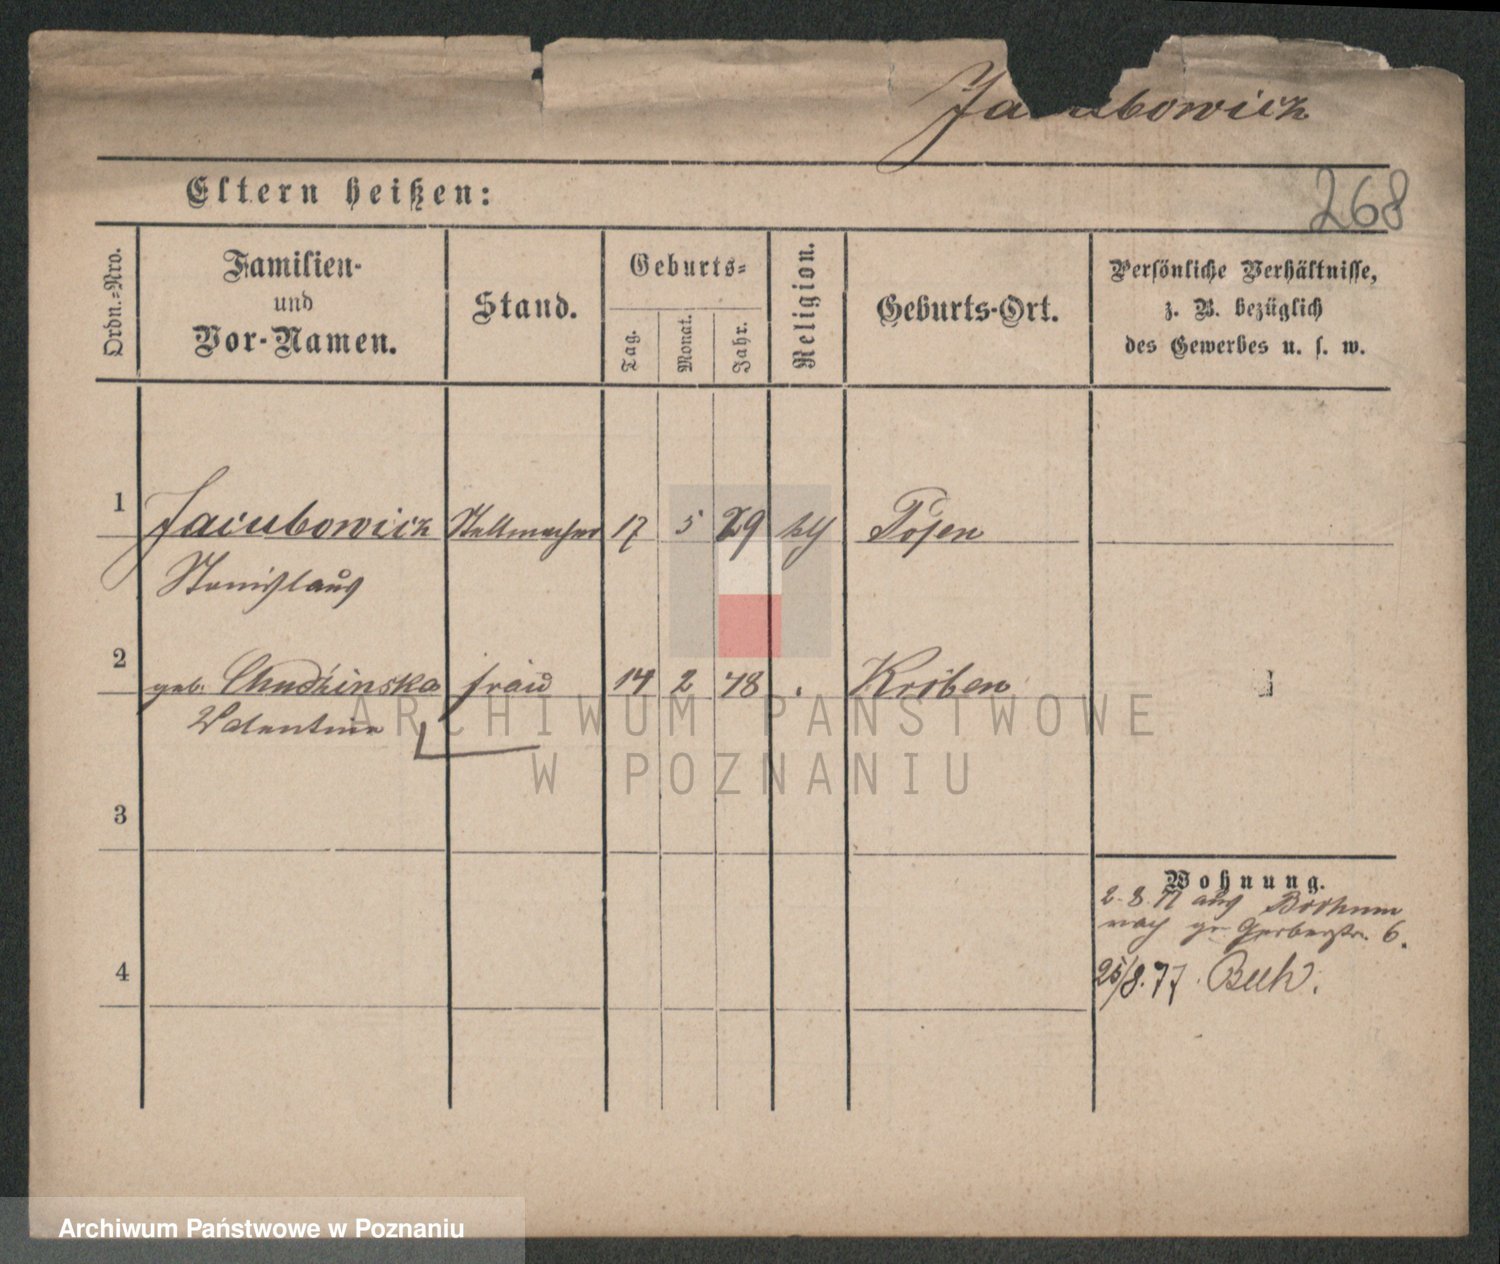 Jacubowicz
268
Eltern heißen:
Ordn.-Nro.
Familien-
und
Vor-Namen.
Stand.
Geburts-
Tag.
Monat.
Jahr.
Religion.
Geburts-Ort.
Persönliche Verhältnisse,
z. B. bezüglich
des Gewerbes u. s. w.
1 Jacubowicz Stellmacher 17 5 29 kth Posen
Stanislaus
2 geb. Chudzinska frau 14 2 48 Kröben
Valentine
3
4
Wohnung.
2. 8. 77 aus Bochum
nach gr. Gerberstr. 6.
25/8. 77.
ARCHIWUM PAŃSTWOWE
W POZNANIU
Archiwum Państwowe w Poznaniu